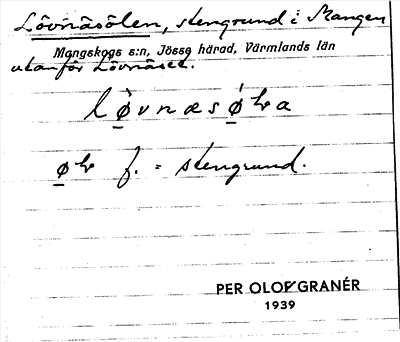 Lövnäsölen, stengrund i Mangen
Mangskogs s:n, Jösse härad, Värmlands län
utanför Lövnäset.
f. = stengrund.
PER OLOF GRANÉR
1939